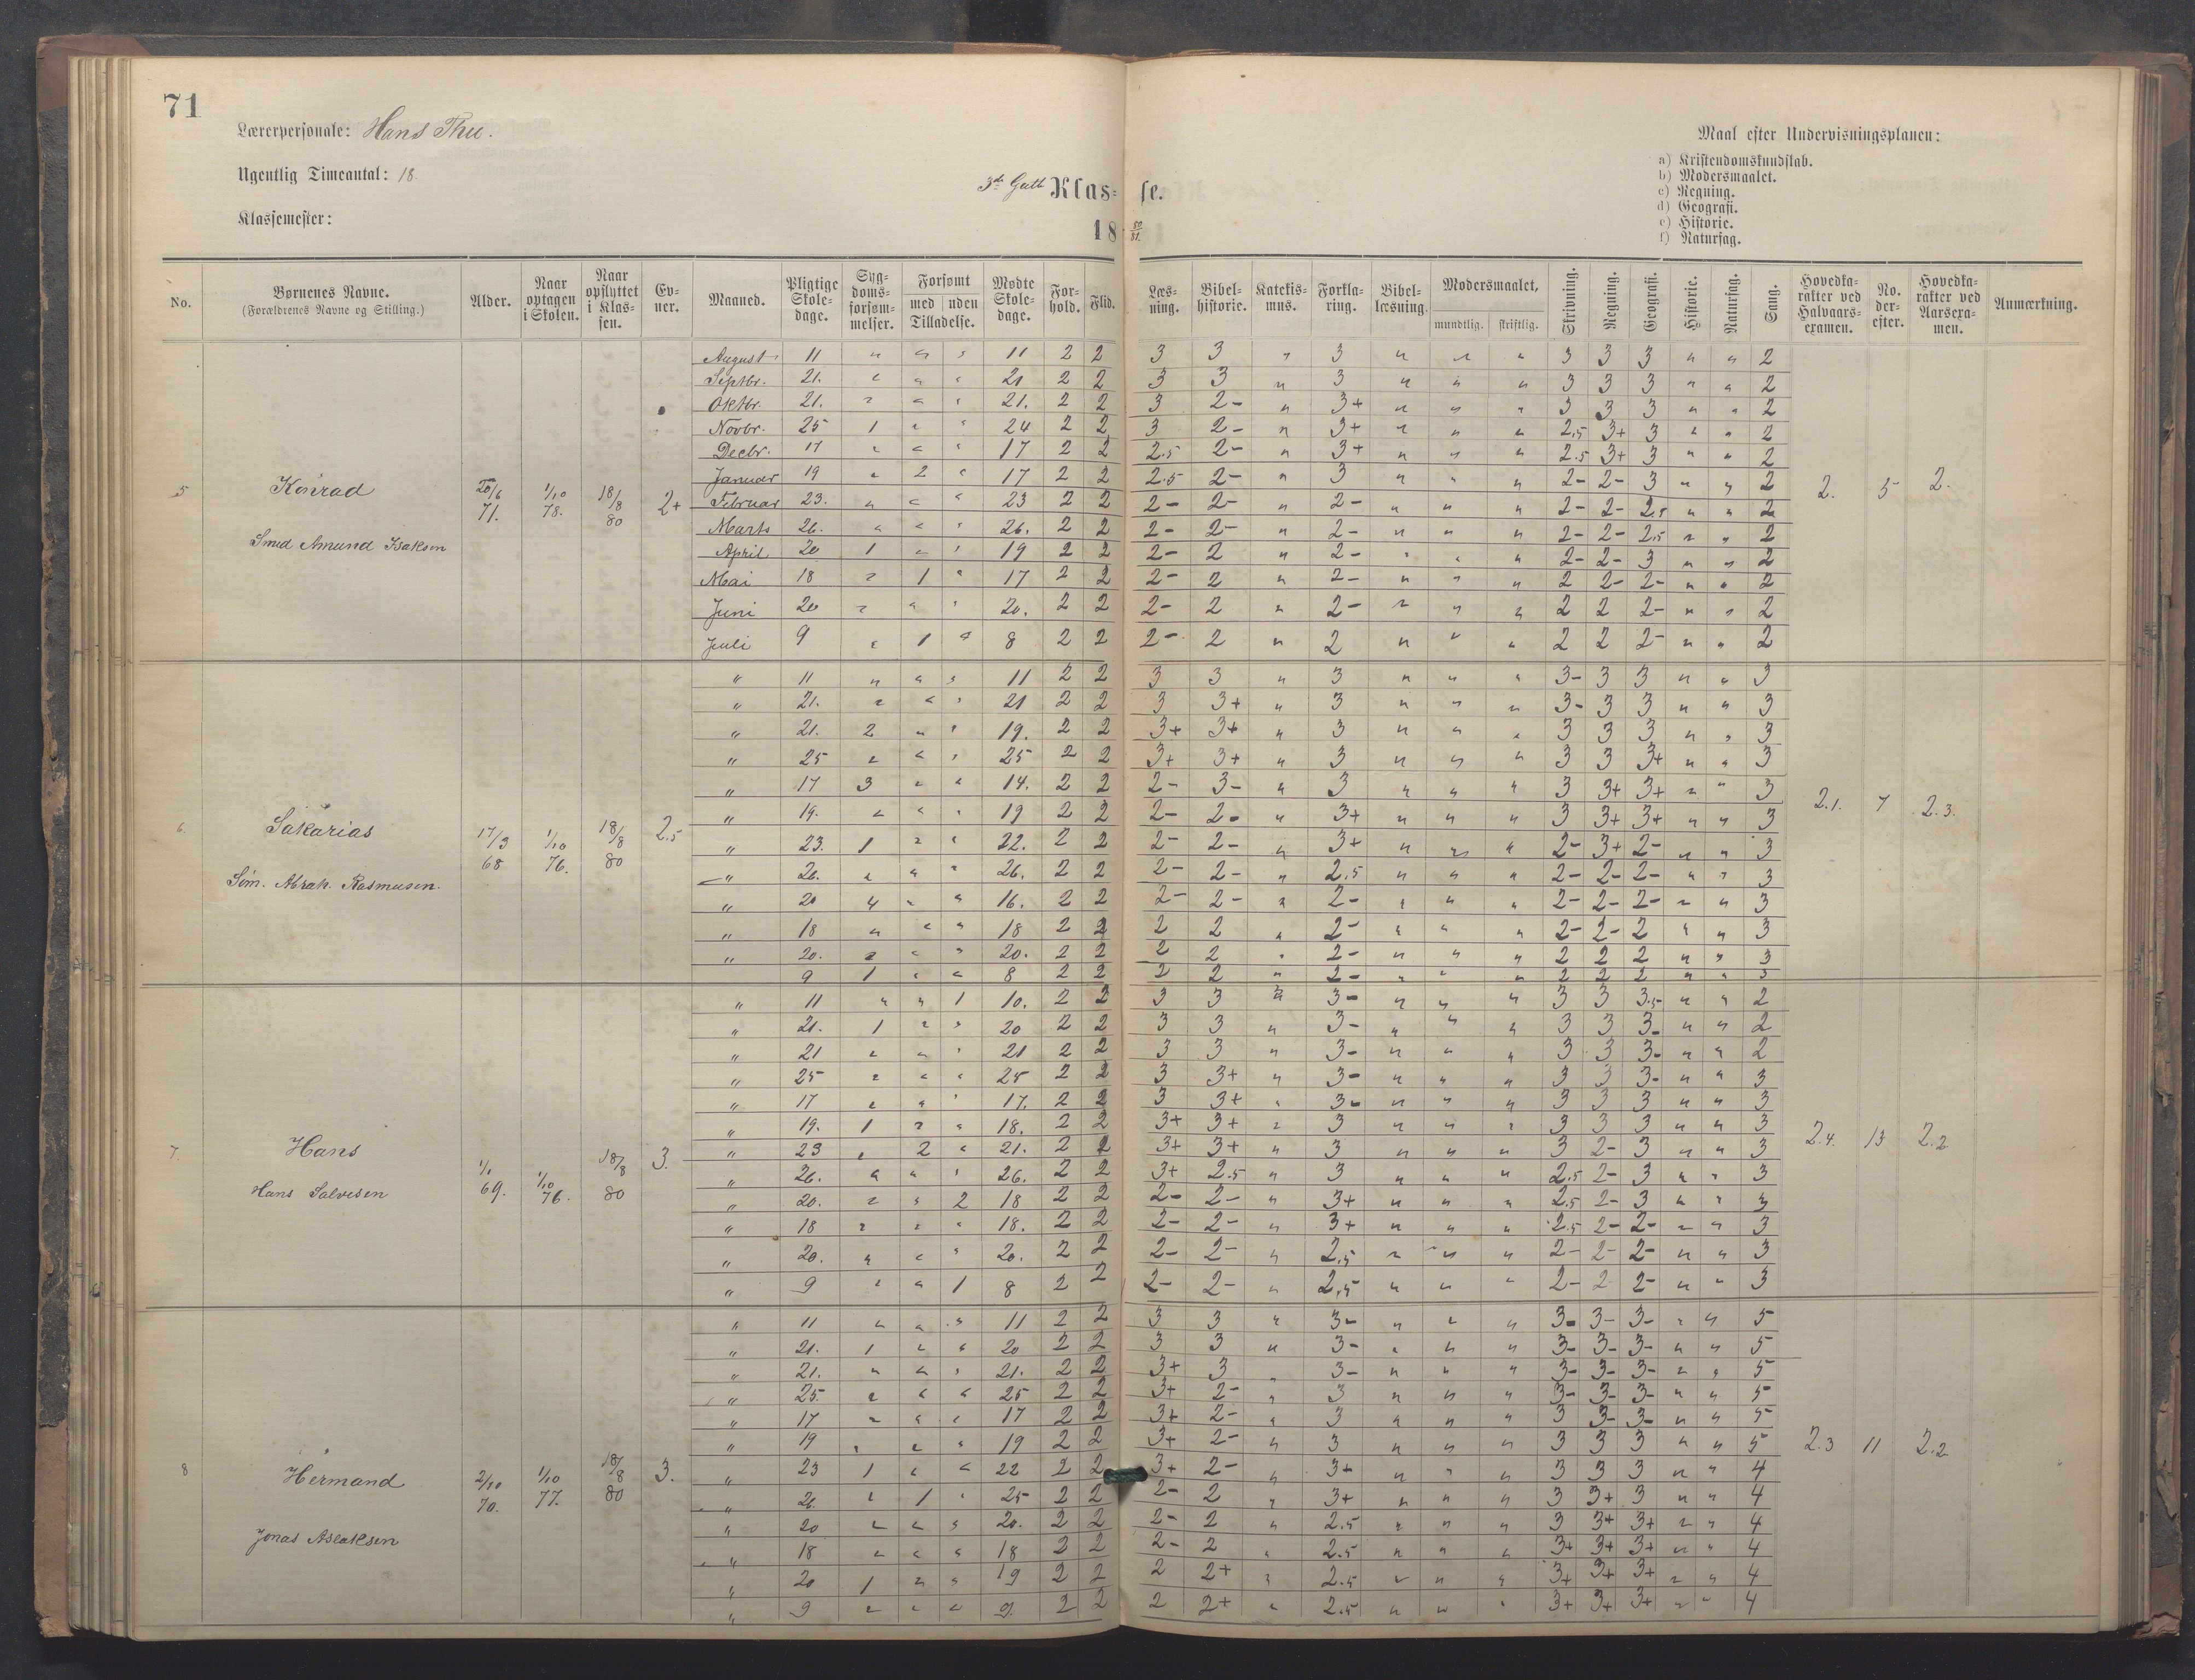 71
Lærerpersonale: Hans Thu.
Ugentlig Timeantal: 18.
Klassemester:
3die Gutt Klasse.
18 80/81.
Maal efter Undervisningsplanen:
a) Kristendomskundskab.
b) Modersmaalet.
c) Regning.
d) Geografi.
e) Historie.
f) Naturfag.
No. Børnenes Navne. (Forældrenes Navne og Stilling.) Alder. Naar optagen i Skolen. Naar opflyttet i Klassen. Evner. Maaned. Pligtige Skoledage. Sygdomsforsømmelser. Forsømt med uden Tilladelse. Mødte Skoledage. Forhold. Flid. Læsning. Bibelhistorie. Katekismus. Forklaring. Bibellæsning. Modersmaalet, mundtlig. skriftlig. Skrivning. Regning. Geografi. Historie. Naturfag. Sang. Hovedkarakter ved Halvaarsexamen. No. derefter. Hovedkarakter ved Aarsexamen. Anmærkning.
5 Konrad 20/6 71. 1/10 78. 18/8 80 2+ 2. 5 2.
Smed Amund Isaksen
August 11 " " " 11 2 2 3 3 " 3 " " " 3 3 3 " " 2
Septbr. 21. " " " 21 2 2 3 3 " 3 " " " 3 3 3 " " 2
Oktbr. 21. " " " 21. 2 2 3 2- " 3+ " " " 3 3 3 " " 2
Novbr. 25 1 " " 24 2 2 3 2- " 3+ " " " 2.5 3+ 3 " " 2
Decbr. 17 " " " 17 2 2 2.5 2- " 3+ " " " 2.5 3+ 3 " " 2
Januar 19 " 2 " 17 2 2 2.5 2- " 3 " " " 2- 2- 3 " " 2
Februar 23. " " " 23 2 2 2- 2- " 2- " " " 2- 2- 2.5 " " 2
Marts 26. " " " 26. 2 2 2- 2- " 2- " " " 2- 2- 2.5 " " 2
April 20 1 " " 19 2 2 2- 2 " 2- " " " 2- 2- 3 " " 2
Mai 18 " 1 " 17 2 2 2- 2 " 2- " " " 2 2- 2- " " 2
Juni 20 " " " 20. 2 2 2- 2 " 2- " " " 2 2 2- " " 2
Juli 9 " 1 " 8 2 2 2- 2 " 2 " " " 2 2 2- " " 2
6. Sakarias 17/3 68 1/10 76. 18/8 80 2.5 2.1. 7 2.3.
Søm. Abrah. Rasmusen.
" 11 " " " 11 2 2 3 3 " 3 " " " 3- 3 3 " " 3
" 21. " " " 21 2 2 3 3+ " 3 " " " 3- 3 3 " " 3
" 21. 2 " " 19. 2 2 3+ 3+ " 3 " " " 3 3 3 " " 3
" 25 " " " 25 2 2 3+ 3+ " 3 " " " 3 3 3+ " " 3
" 17 3 " " 14. 2 2 2- 3- " 3 " " " 3 3+ 3+ " " 3
" 19. " " " 19 2 2 2- 2- " 3+ " " " 3 3+ 3+ " " 3
" 23. 1 " " 22. 2 2 2- 2- " 3+ " " " 2- 3+ 2- " " 3
" 26. " " " 26. 2 2 2- 2- " 2.5 " " " 2- 2- 2- " " 3
" 20 4 " " 16. 2 2 2- 2- " 2- " " " 2- 2- 2- " " 3
" 18 " " " 18 2 2 2 2 " 2- " " " 2- 2- 2 " " 3
" 20. " " " 20. 2 2 2 2 " 2- " " " 2 2 2 " " 3
9 1 " " 8 2 2 2 2 " 2- " " " 2 2 2 " " 3
7. Hans 1/1 69. 1/10 76. 18/8 80 3. 2.4. 13 2.2
Hans Salvesen
" 11 " " 1 10. 2 2 3 3 " 3- " " " 3 3 3.5- " " 2
" 21. 1 " " 20 2 2 3 3 " 3- " " " 3 3 3- " " 2
" 21 " " " 21 2 2 3 3 " 3- " " " 3 3 3- " " 2
" 25 " " " 25 2 2 3 3+ " 3- " " " 3 3 3- " " 3
" 17 " " " 17. 2 2 3 3+ " 3- " " " 3 3 3 " " 3
" 19. 1 " " 18. 2 2 3+ 3+ " 3 " " " 3 3 3 " " 3
" 23 " 2 " 21. 2 2 3+ 3+ " 3 " " " 3 2- 3 " " 3
" 26. " " " 26. 2 2 3+ 2.5 " 3 " " " 2.5 2- 3 " " 3
" 20. " " 2 18 2 2 2- 2- " 3+ " " " 2.5 2- 3 " " 3
" 18 " " " 18. 2 2 2- 2- " 3+ " " " 2.5 2- 2- " " 3
" 20. " " " 20. 2 2 2- 2- " 2.5 " " " 2- 2- 2- " " 3
" 9 " " 1 8 2 2 2- 2- " 2.5 " " " 2- 2 2- " " 3
8 Hermand 2/10 70. 1/10 77. 18/8 80 3. 2.3 11 2.2
Jonas Aslaksen
" 11 " " " 11 2 2 3 3 " 3- " " " 3- 3- 3- " " 5
" 21. 1 " " 20 2 2 3 3 " 3- " " " 3- 3- 3- " " 5
" 21. " " " 21. 2 2 3+ 3 " 3- " " " 3- 3- 3- " " 5
" 25. " " " 25 2 2 3+ 2- " 3 " " " 3- 3- 3- " " 5
" 17 " " " 17 2 2 3+ 2- " 3 " " " 3 3- 3- " " 5
" 19 " " " 19 2 2 3+ 2- " 3 " " " 3 3 3 " " 5
" 23 1 " " 22 2 2 3+ 2- " 3+ " " " 3 3 3 " " 4
" 26. " 1 " 25 2 2 2- 2 " 3+ " " " 3 3+ 3 " " 4
" 20 " " " 20. 2 2 2- 2 " 2.5 " " " 3 3+ 3+ " " 4
" 18 " " " 18 2 2 2- 2 " 2.5 " " " 3+ 3+ 3+ " " 4
" 20 1 " " 19 2 2 2 2+ " 2.5 " " " 3+ 3+ 3+ " " 4
" 9 " " " 9. 2 2 2 2+ " 2.5 " " " 3+ 3+ 3+ " " 4